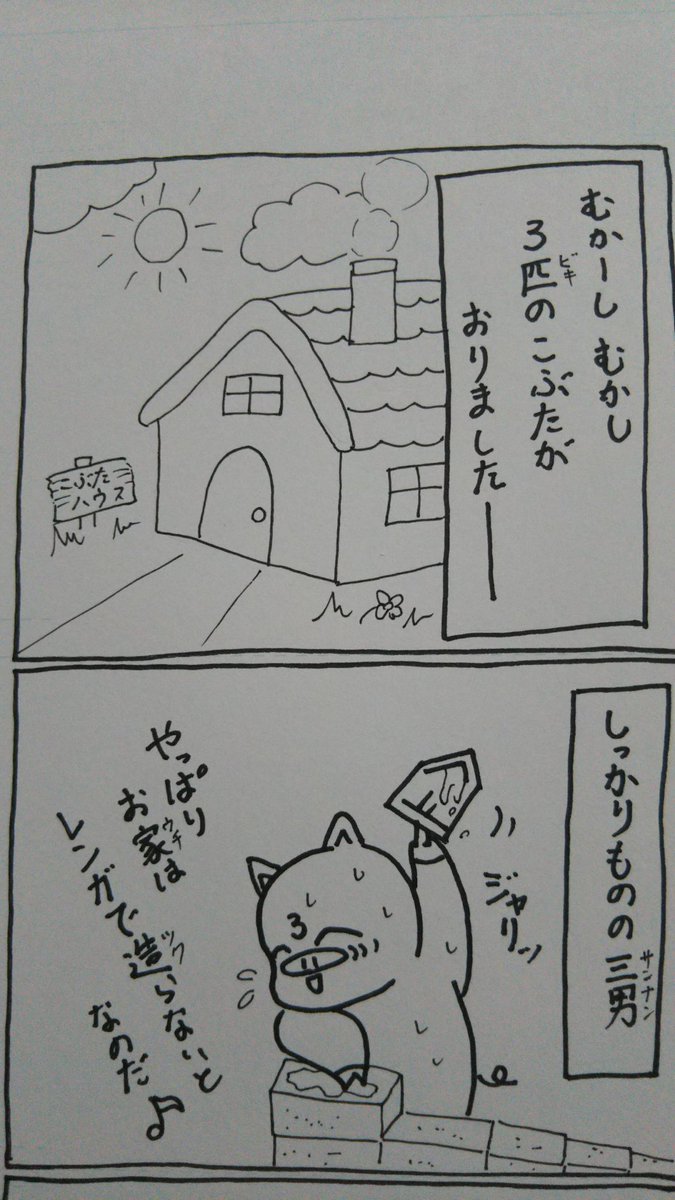 むかーし むかし
3匹のこぶたが
ビキ
おりましたー
こぶた
ハウス
しっかりものの三男
サンナン
ジャリッ
3
やっぱり
お家は
ウチ
レンガで造らないと
ツク
なのだ♪